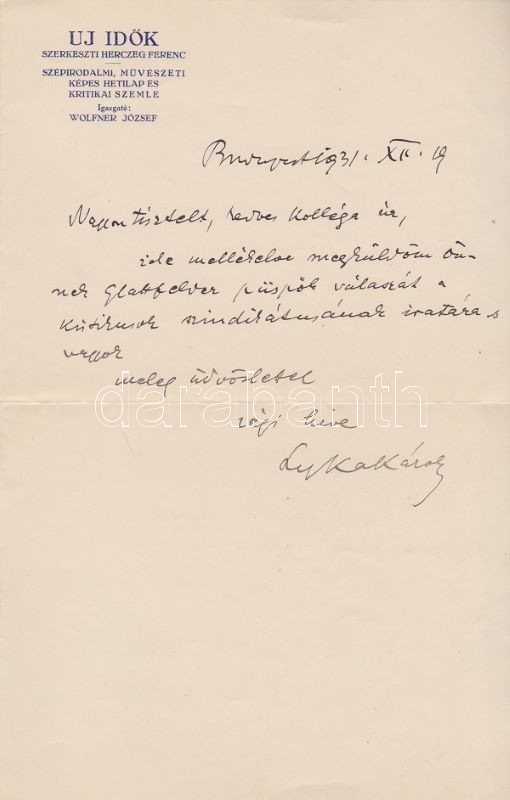 UJ IDŐK
SZERKESZTI HERCZEG FERENC
SZÉPIRODALMI, MŰVÉSZETI
KÉPES HETILAP ÉS
KRITIKAI SZEMLE
Igazgató:
WOLFNER JÓZSEF
Budapest 1931. XII. 19
Nagyon tisztelt, kedves Kolléga úr,
ide mellékelve megküldöm Ön-
nek Glattfelder püspök válaszát a
Kritikusok szindikátusának iratára s
vagyok
meleg üdvözlettel
régi híve
Lyka Károly
darabanth